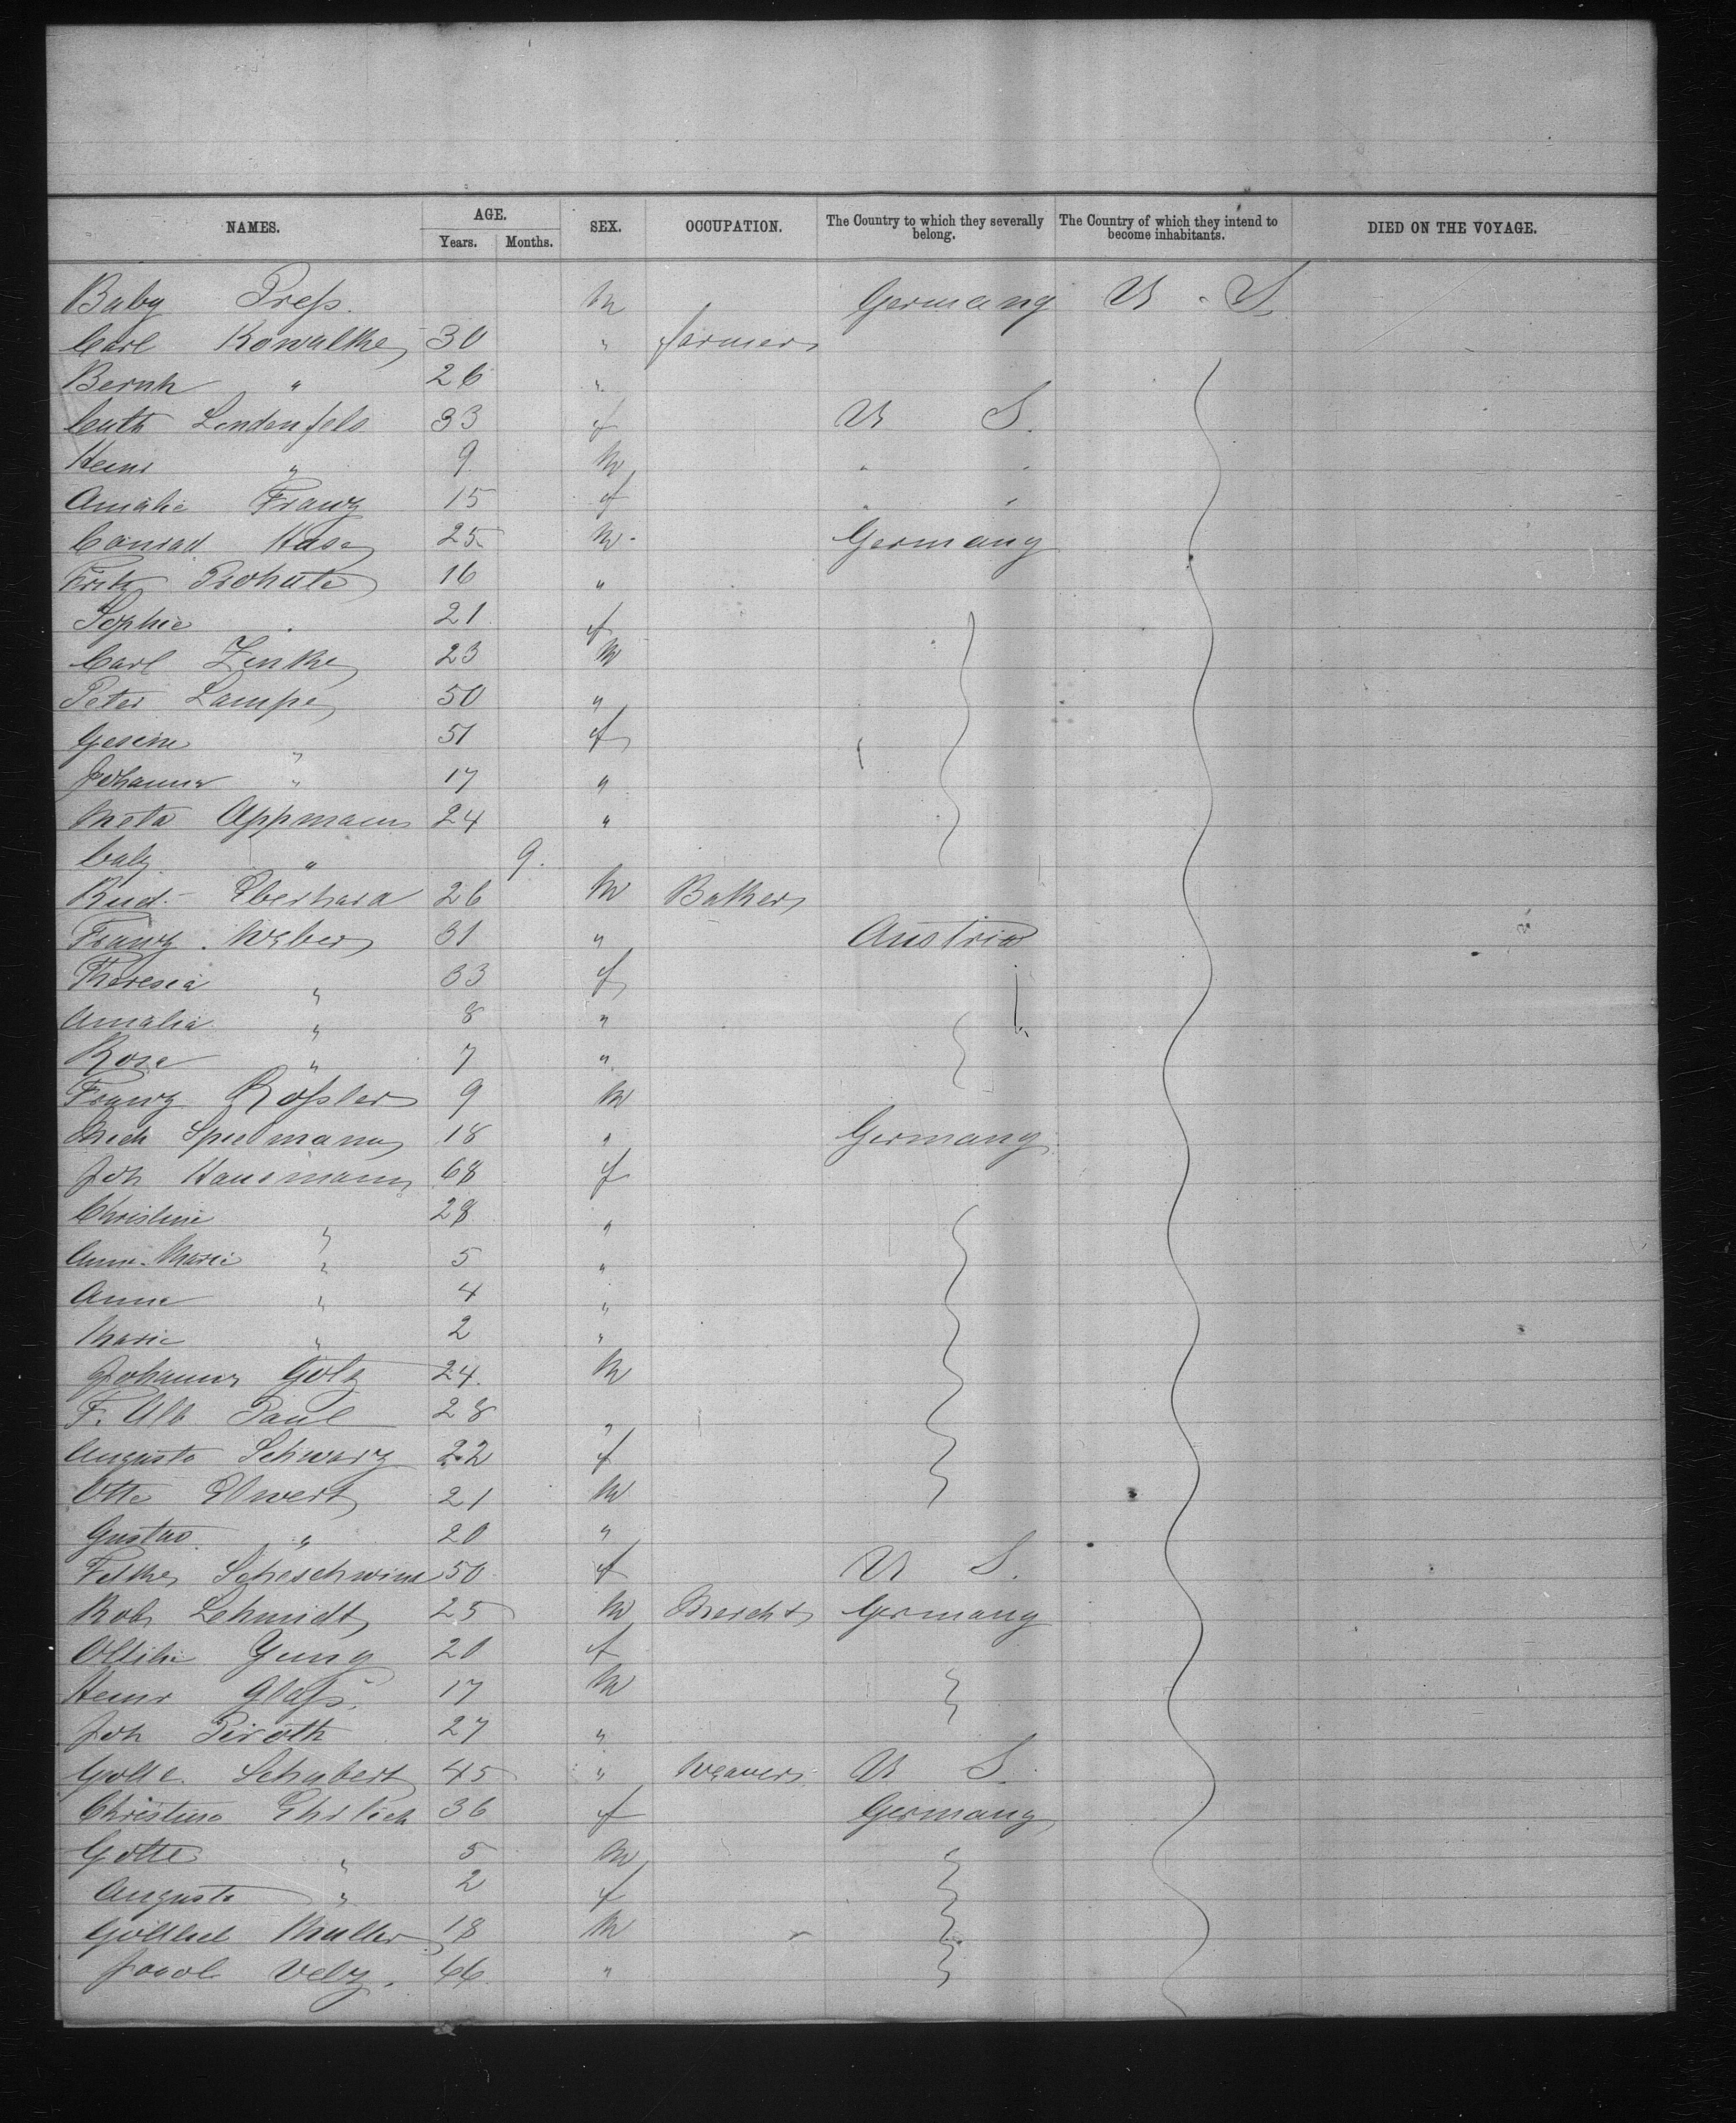 NAMES. AGE. Years. Months. SEX. OCCUPATION. The Country to which they severally belong. The Country of which they intend to become inhabitants. DIED ON THE VOYAGE.
Baby Press. M Germany U. S.
Carl Kowalke 30 " farmer
Bernh " 26 "
Cath Lindenfels 33 f U S.
Heinr " 9 M " "
Amalie Franz 15 f " "
Conrad Hase 25 M. Germany
Fritz 16 "
Sophie " 21 f
Carl Zenke 23 M
Peter Lampe 50 "
Gesine " 51 f
Johanna " 17 "
Meta Appmann 24 "
baby " 9.
Rud. Eberhard 26 M Baker
Franz Weber 31 " Austria
Theresia " 33 f
Amalia " 8 "
Rosa " 7 "
Franz Rossler 9 M
Mich Speelmann 18 " Germany
Joh Hausmann 68 f
Christine " 28 "
Anna Marie " 5 "
Anna " 4 "
Marie " 2 "
Johann Golz 24. M
F. Alb Paul 28 "
Augusta Schwarz 22 f
Otto Ewert 21 M
Gustav " 20 "
50 f U S.
Rob Schmidt 25 M Mercht Germany
Ottilie Yung 20 f
Heinr Glass 17 M
Joh Piroth 27 "
Schubert 45 " Weaver U S.
Christine Ehrlich 36 f Germany
Gotte " 5 M
Augusta " 2 f
Gottlieb Muller 18 M
Jacob Velz. 66 "